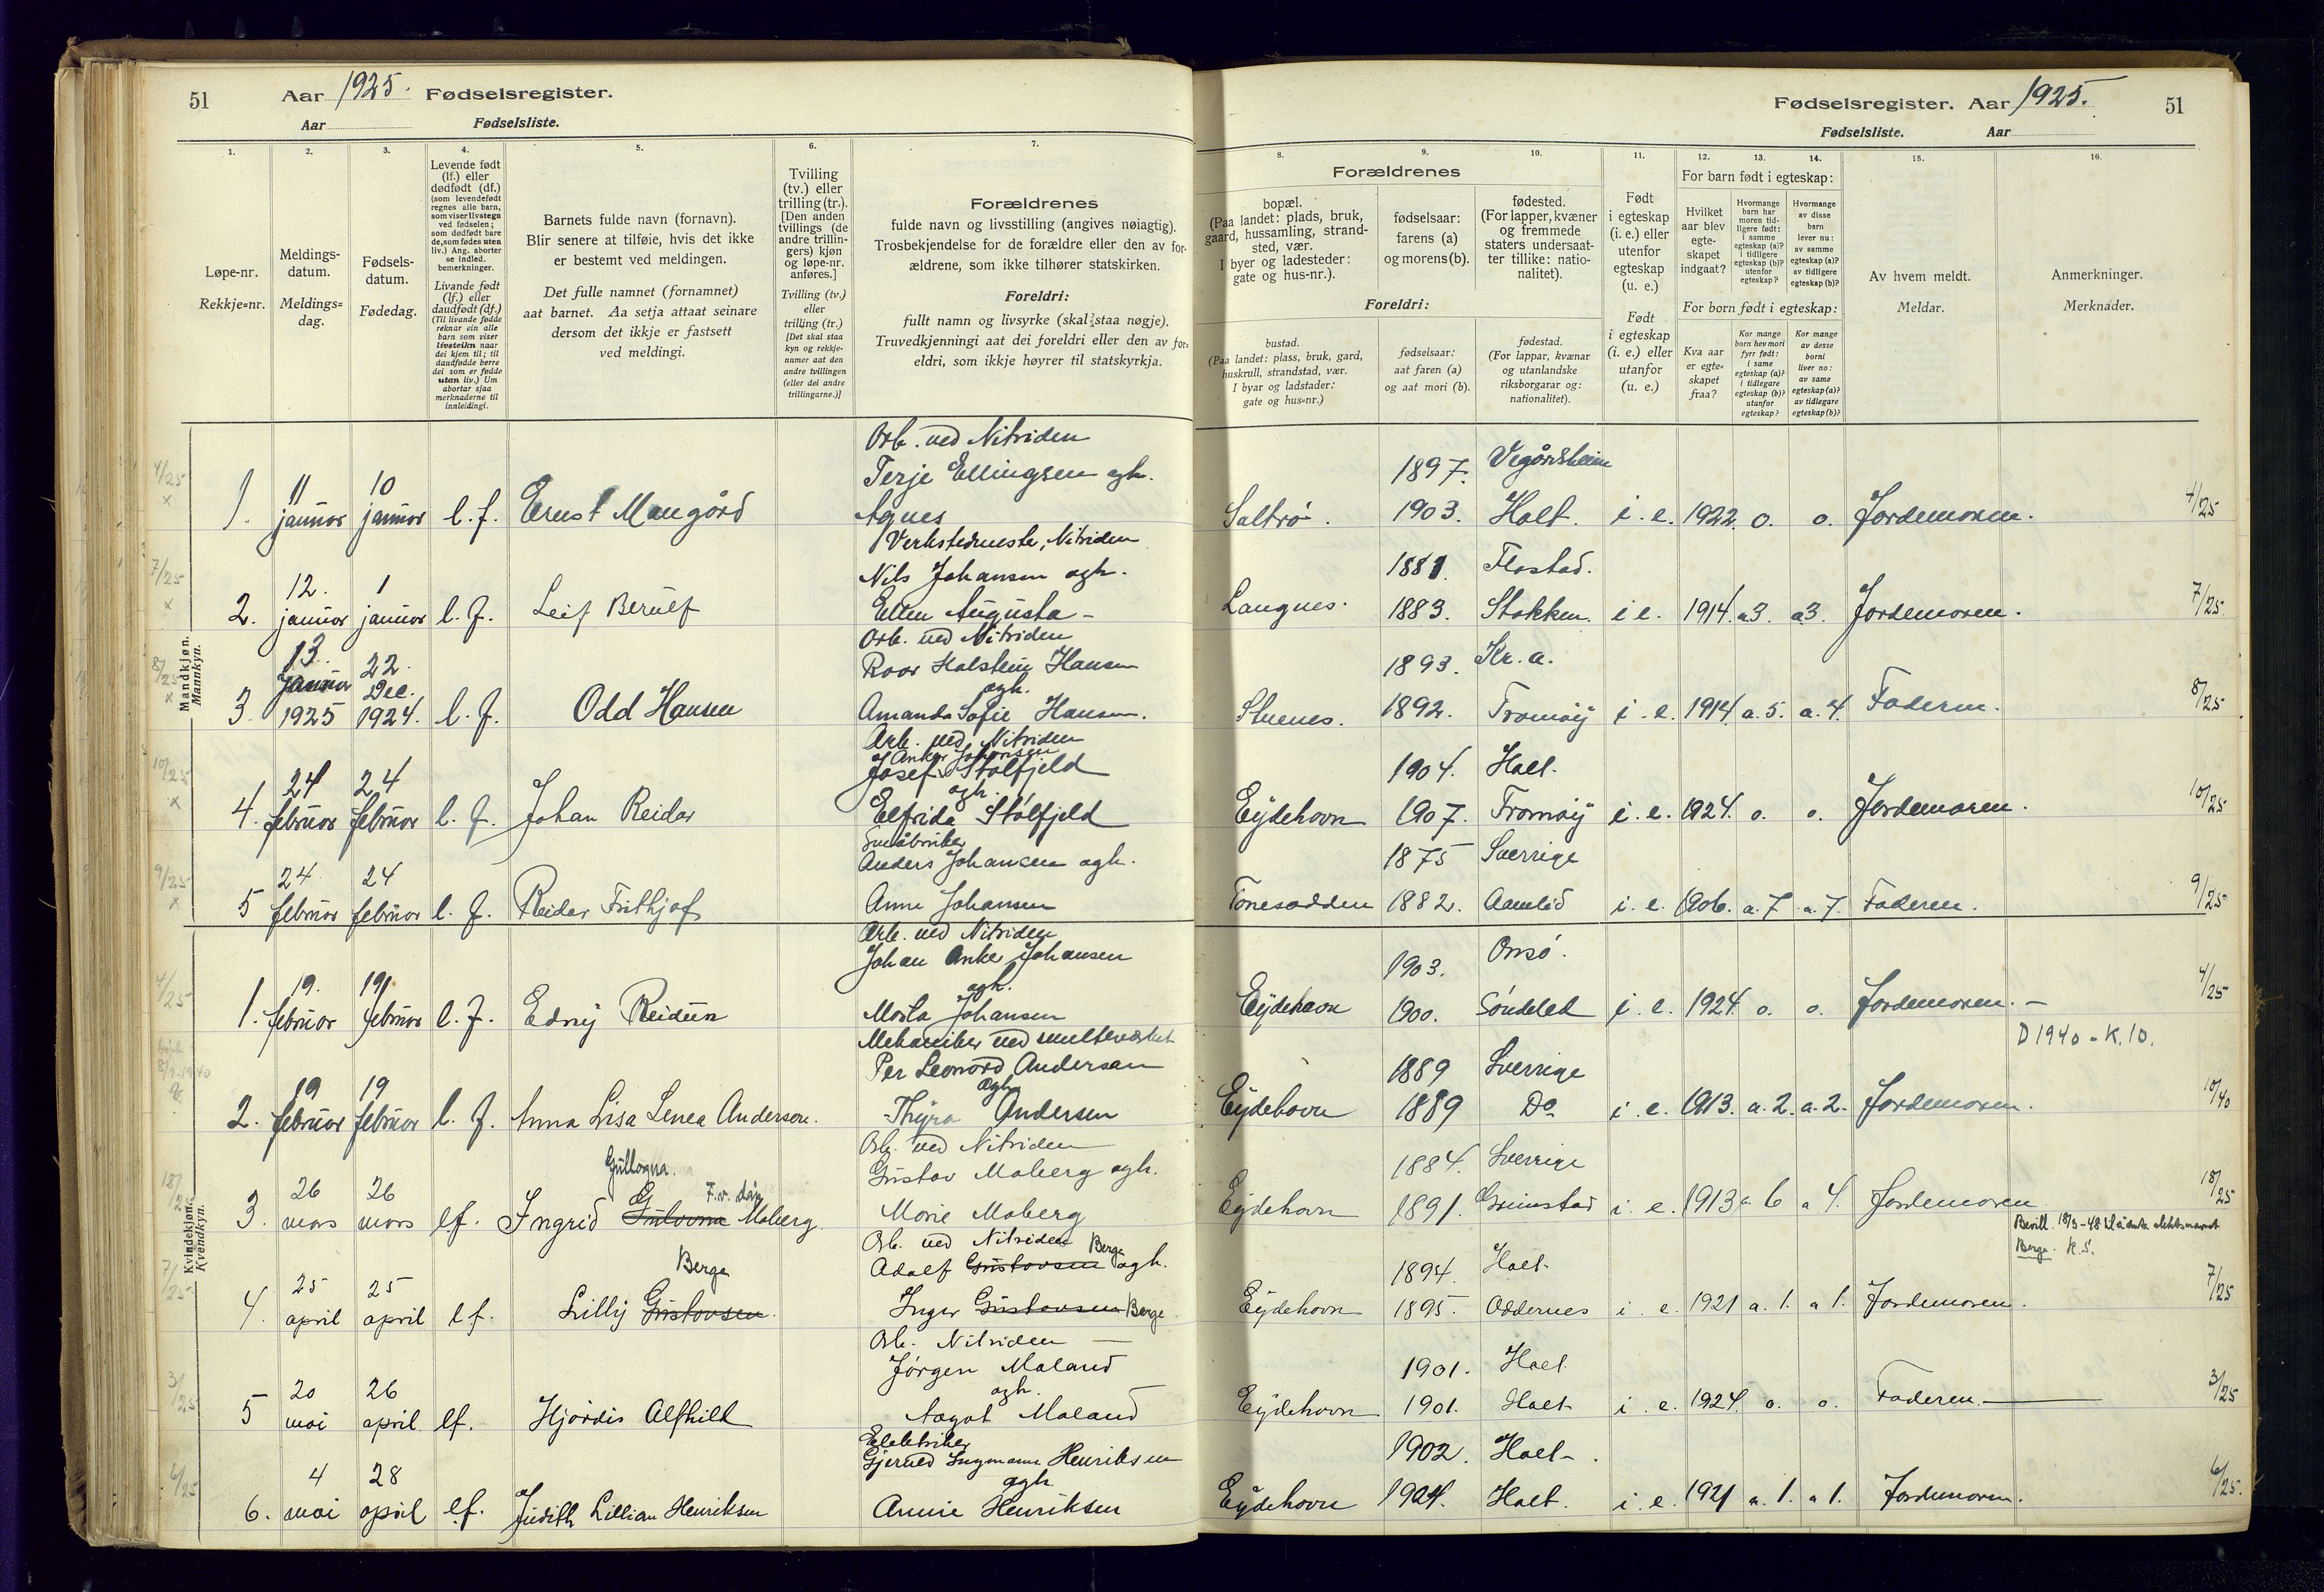 51 Aar 1925. Fødselsregister.
Aar Fødselsliste.
Fødselsregister. Aar 1925. 51
Fødselsliste. Aar
1. 2. 3. 4. 5. 6. 7.
Løpe-nr.
Rekkje=nr.
Meldings-
datum.
Meldings=
dag.
Fødsels-
datum.
Fødedag.
Levende født
(lf.) eller
dødfødt (df.)
(som levendefødt
regnes alle barn,
som viser livstegn
ved fødselen;
som dødfødt bare
de, som fødes uten
liv.) Ang. aborter
se indled.
bemerkninger.
Livande født
(lf.) eller
daudfødt (df.)
(Til livande fødde
reknar ein alle
barn som viser
livsteikn naar
dei kjem til; til
daudfødde berre
dei som er fødde
utan liv.) Um
abortar sjaa
merknaderne til
innleidingi.
Barnets fulde navn (fornavn).
Blir senere at tilføie, hvis det ikke
er bestemt ved meldingen.
Det fulle namnet (fornamnet)
aat barnet. Aa setja attaat seinare
dersom det ikkje er fastsett
ved meldingi.
Tvilling
(tv.) eller
trilling (tr.).
[Den anden
tvillings (de
andre trillin-
gers) kjøn
og løpe-nr.
anføres.]
Tvilling (tv.)
eller
trilling (tr.)
[Det skal staa
kyn og rekkje-
numer aat den
andre tvillingen
(eller dei andre
trillingarne.)]
Forældrenes
fulde navn og livsstilling (angives nøiagtig).
Trosbekjendelse for de forældre eller den av for-
ældrene, som ikke tilhører statskirken.
Foreldri:
fullt namn og livsyrke (skal staa nøgje).
Truvedkjenningi aat dei foreldri eller den av for-
eldri, som ikkje høyrer til statskyrkja.
8. 9. 10. 11. 12. 13. 14. 15. 16.
Forældrenes
bopæl.
(Paa landet: plads, bruk,
gaard, hussamling, strand-
sted, vær.
I byer og ladesteder:
gate og hus-nr.).
fødselsaar:
farens (a)
og morens (b).
fødested.
(For lapper, kvæner
og fremmede
staters undersaat-
ter tillike: natio-
nalitet).
Foreldri:
bustad.
(Paa landet: plass, bruk, gard,
huskrull, strandstad, vær.
I byar og ladstader:
gate og hus=nr.)
fødselsaar:
aat faren (a)
og aat mori (b).
fødestad.
(For lappar, kvænar
og utanlandske
riksborgarar og:
nationalitet).
Født
i egteskap
(i. e.) eller
utenfor
egteskap
(u. e.)
Født
i egteskap
(i. e.) eller
utanfor
(u. e.)
For barn født i egteskap:
Hvilket
aar blev
egte-
skapet
indgaat?
Hvormange
barn har
moren tid-
ligere født:
i samme
egteskap (a)?
i tidligere
egteskap (b)?
utenfor
egteskap?
Hvormange
av disse
barn
lever nu:
av samme
egteskap (a)?
av tidligere
egteskap (b)?
For born født i egteskap:
Kva aar
er egte=
skapet
fraa?
Kor mange
born hev mori
fyrr født:
i same
egteskap (a)?
i tidlegare
egteskap (b)?
utanfor
egteskap?
Kor mange
av desse
borni
liver no:
av same
egteskap (a)?
av tidlegare
egteskap (b)?
Av hvem meldt.
Meldar.
Anmerkninger.
Merknader.
Mandkjøn.
Mannkyn.
Arb. ved Nitriden
Terje Ellingsen ogh. 1897. Vegårdsheim
4/25 1. 11 januar 10 januar l. f. Ernst Maugård Agnes Saltrø. 1903. Holt. i. e. 1922. o. o. Jordemoren. 4/25
Verkstedmester, Nitriden
Nils Johansen ogh. 1881. Flostad.
7/25 2. 12. januar 1 januar l. f. Leif Berulf Ellen Augusta – Langnes. 1883. Stokken. i e. 1914. a3. a3. Jordemoren. 7/25
Arb. ved Nitriden
Roar Halstein Hansen ogh. 1893. Kr. a.
8/25 3. 13. Januar 1925 22. Dec. 1924. l. f. Odd Hansen Amanda Sofie Hansen. Sluenes. 1892. Tromøy i. e. 1914. a. 5. a. 4. Faderen. 8/25
Arb. ved Nitriden
Josef Stølfjeld ogh. 1904. Holt.
10/25 4. 24 februar 24 februar l. f. Johan Reidar Elfrida Stølfjeld Eydehavn 1907. Tromøy i. e. 1924. o. o. Jordemoren. 10/25
Småbruker
Anders Johansen ogh. 1875 Sverrige
9/25 5 24 februar 24 februar l. f. Reidar Frithjof Anne Johansen Tonesodden 1882. Aamlid i. e. 1906. a. 7 a. 7. Faderen. 9/25
Kvindekjøn.
Kvendkyn.
Arb. ved Nitriden
Johan Anker Johansen ogh. 1903. Onsø.
4/25 1. 19. februar 19 februar l. f. Edny Reidun Marta Johansen Eydehavn 1900. Søndeled i. e. 1924. o. o. Jordemoren. – 4/25
Mekaniker ved smelteverket
Per Leonard Andersen ogh. 1889 Sverrige D 1940 - K. 10.
2. 19 februar 19 februar l. f. Anna Lisa Linea Anderson. Thyra Andersen Eydehavn 1889 Do i. e. 1913. a. 2. a. 2. Jordemoren. 10/40
Arb. ved Nitriden
Gullorna. Gustav Moberg ogh. 1884. Sverrige
3. 26 mars 26 mars lf. Ingrid Gulvorna Moberg. Marie Moberg Eydehavn 1891. Grimstad i. e. 1913 a 6 a 4. Jordemoren 18/25
Arb. ved Nitriden Bevill. 18/3-48 til
Berge. K. S.
Berge Adolf Gustavsen Berge ogh. 1894. Holt.
7/25 4. 25 april 25 april lf. Lilly Gustavsen. Inger Gustavsen Berge Eydehavn 1895. Oddernes i. e. 1921 a. 1. a 1. Jordemoren. 7/25
Arb. Nitriden –
Jørgen Moland ogh. 1901. Holt
3/25 5 20 mai 26 april lf. Hjørdis Alfhild Aagot Moland Eydehavn 1901. Holt i. e. 1924. o. o. Faderen. 3/25
Elektriker
Gjerued Ingmann Henriksen ogh. 1902. Holt.
6/25 6. 4 mai 28 april lf. Judith Lillian Henriksen Annie Henriksen Eydehavn 1904. Holt. i. e. 1921 a. 1. a 1. Jordemoren. 6/25.